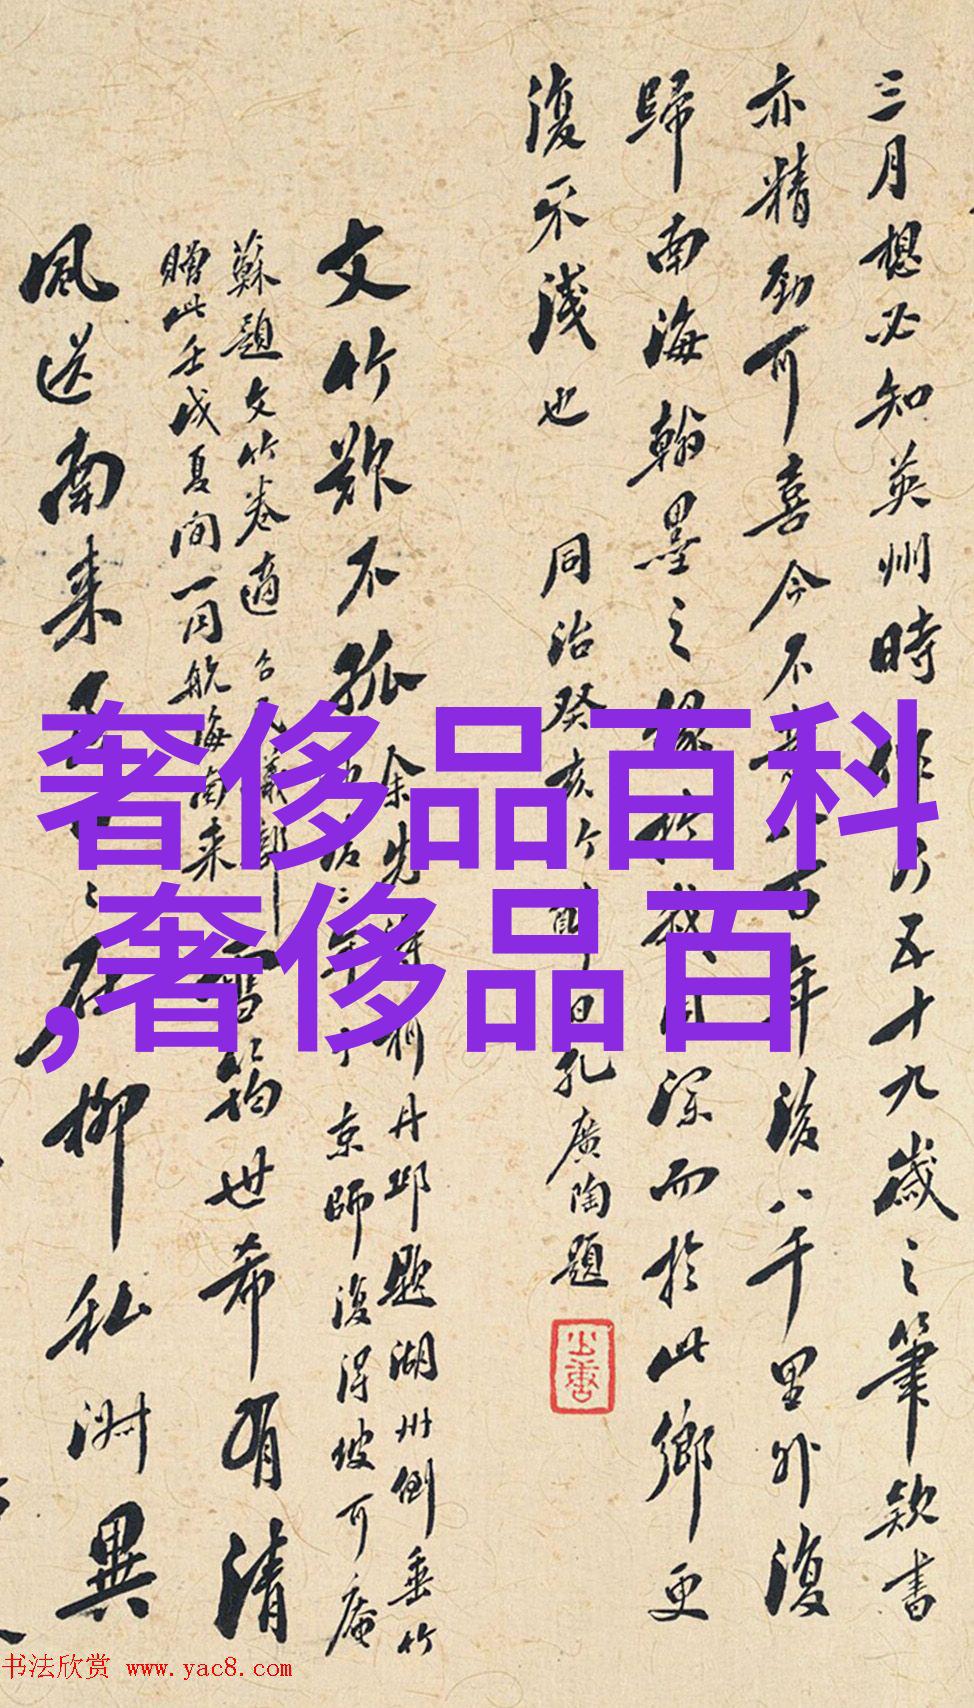 三月想必知英州時作乃五十九歲之筆款書
亦精勁可喜今不意八百年後八千里外復
歸南海翰墨之緣於我獨深而於此鄉更
復不淺也 同治癸亥 日孔廣陶題
文竹歎不孤 余先得柯丹邱題湖州倒垂竹
京師復得坡可庵
蘇題文竹卷適
贈此壬戌夏間一同航海南来
雪筠世希有清
風送南来 柳私淑異
奢侈品百科
,奢侈品百
书法欣赏 www.yac8.com